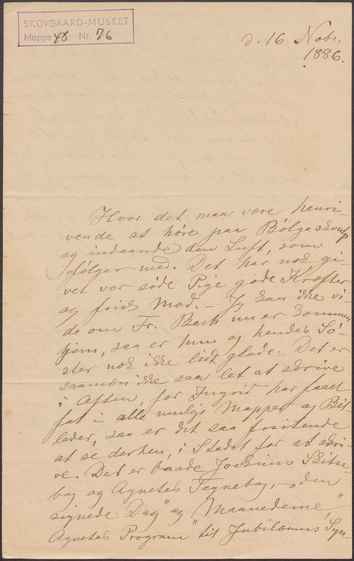 SKOVGAARD-MUSEET
Mappe 48 Nr. 76
d. 16. Nobr.
1886.
Hvor det maa være henri-
vende at høre paa Bølgeskvulp
og indaande den Luft, som
følger med. Det har nok gi-
vet vor søde Pige gode Kræfter
og frisk Mod. – Jeg kan ikke vi-
de om Fr. Back nu er kommen
hjem, saa er hun og hendes Sø-
ster nok ikke lidt glade. Det er
saamen ikke saa let at skrive
i Aften, for Ingrid har faaet
fat i alle mulige Mapper og Bil-
leder, saa er det saa fristende
at se derhen, i Stedet for at skri-
ve. Det er baade Joakims Skitse
bog og Agnetes Tegnebog, "den
signede Dag og Maanederne"
Agnetes Program til Jubilæums Syn